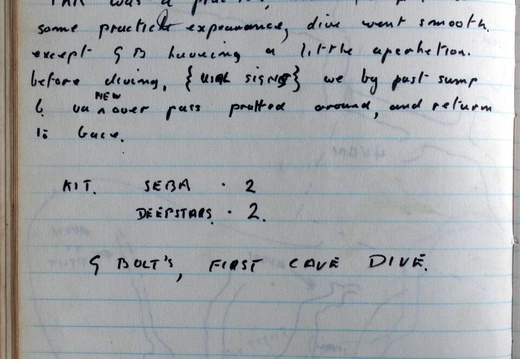 THIS was a
some practice experance, dive went smooth.
except G B haveing a little aprehetion.
before diving, {USAL SIGNS} we by past sump
6, via NEW over pass protted around, and return
to bace.
KIT. SEBA · 2
DEEPSTARS · 2.
G BOLT'S, FIRST CAVE DIVE.